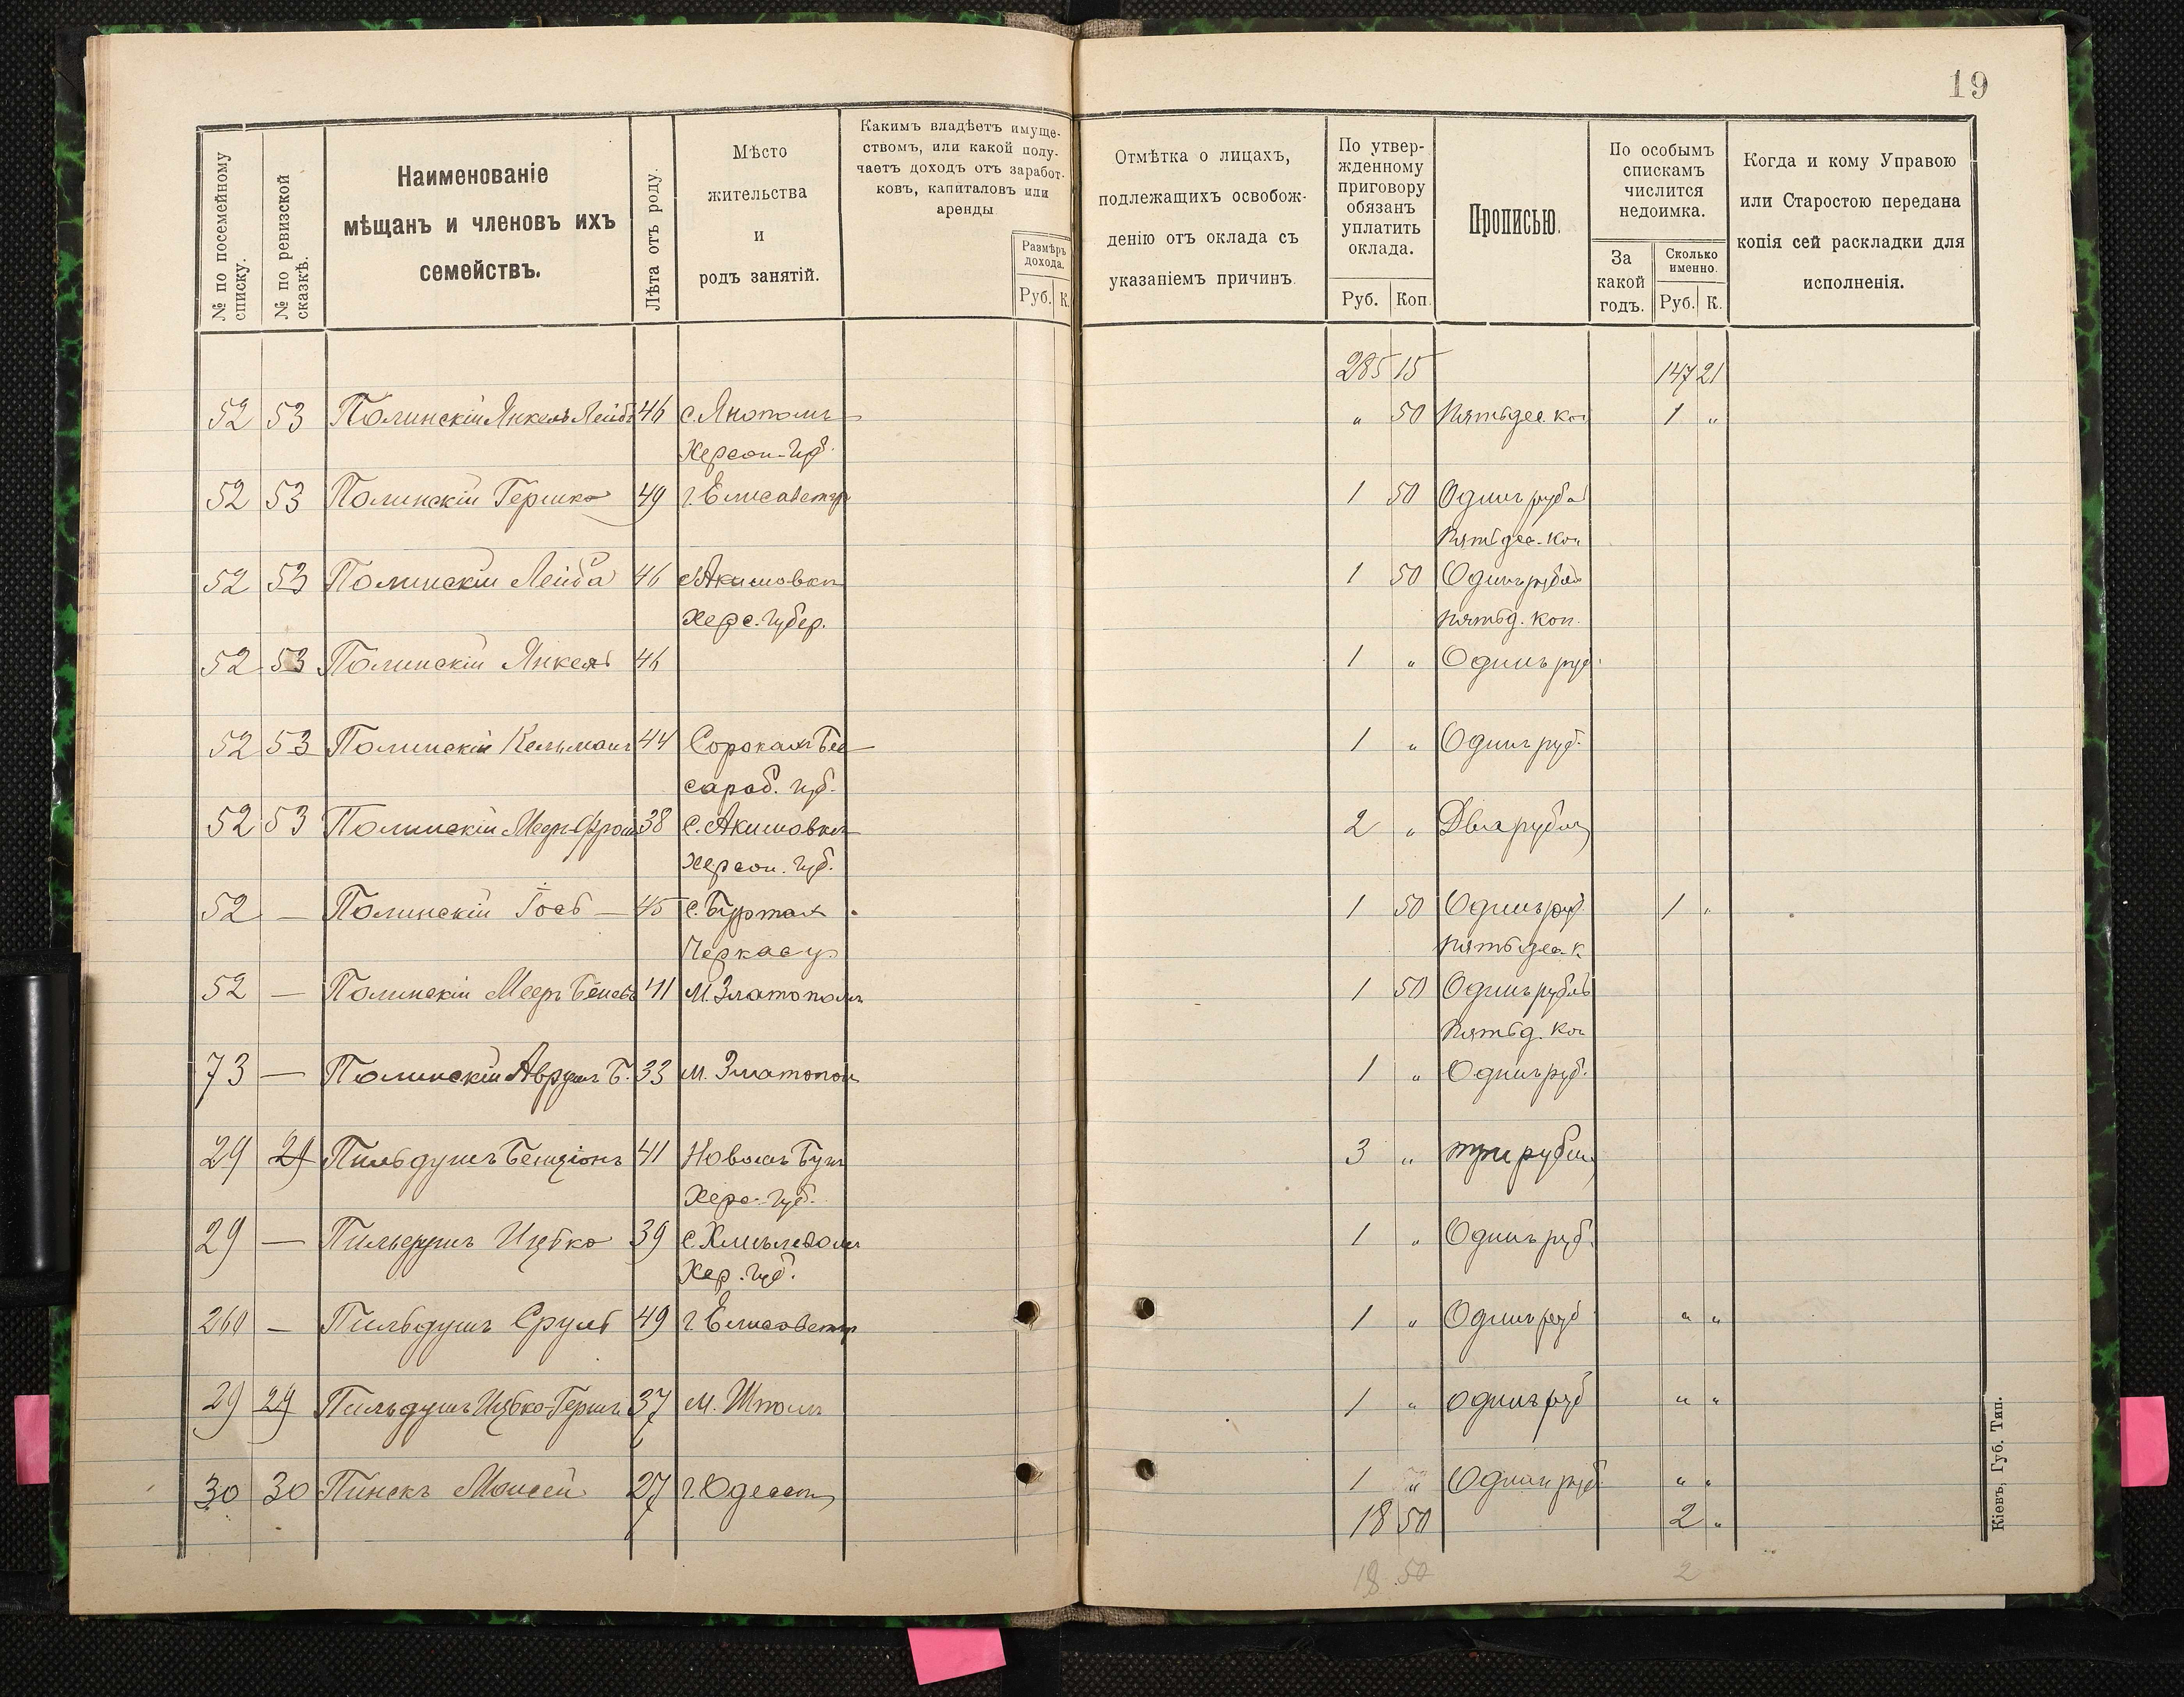 19
№ по посемейному списку.
№ по ревизской сказкѣ.
Наименованіе
мѣщанъ и членовъ ихъ
семействъ.
Лѣта отъ роду.
Мѣсто
жительства
и
родъ занятій.
Какимъ владѣетъ имуще-
ствомъ, или какой полу-
чаетъ доходъ отъ заработ-
ковъ, капиталовъ или
аренды
Размѣръ
дохода.
Руб. К.
Отмѣтка о лицахъ,
подлежащихъ освобож-
денію отъ оклада съ
указаніемъ причинъ.
По утвер-
жденному
приговору
обязанъ
уплатить
оклада.
Руб. Коп.
Прописью.
По особымъ
спискамъ
числится
недоимка.
За
какой
годъ.
Сколько
именно.
Руб. К.
Когда и кому Управою
или Старостою передана
копія сей раскладки для
исполненія.
285 15 147 21
52 53 Полинскій Янкель Лейб 46 с. „ 50 Пятьдес. коп 1 „
Херсон. губ.
52 53 Полинскій Гершко 49 г. Елисаветгр 1 50 Одинъ рубль
Пятьдес. коп
52 53 Полинскій Лейба 46 с. Акимовка 1 50 Одинъ рубль
Херс. губер. пятьд. коп.
52 53 Полинскій Янкель 46 1 „ Одинъ руб.
52 53 Полинскій Кельманъ 44 Сорокахъ Бес 1 „ Одинъ руб.
сараб. губ.
52 53 Полинскій Меер-Фроим 38 с. Акимовка 2 „ Два рубля
Херсон. губ.
52 — Полинскій Іось — 45 с. Буртах 1 50 Одинъ руб. 1 „
Черкас у. пятьдес. к.
52 — Полинскій Мееръ 41 М. Златополь 1 50 Одинъ рубль
Пятьд. коп
73 — Полинскій Аврумъ Б. 33 м. Златопол 1 „ Одинъ руб.
29 29 Пильдушъ Бенціонъ 41 Новый Бугъ 3 „ три рубля
Херс. губ.
29 — Пильдушъ Ицько 39 с. 1 „ Одинъ руб.
Хер. губ.
260 — Пильдушъ Сруль 49 г. Елисаветгр 1 „ Одинъ руб „ „
29 29 Пильдушъ Ицько-Гершъ 37 м. Шпола 1 „ одинъ руб „ „
30 30 Пинскъ Моисей 27 г. Одесса 1 „ Одинъ руб „ „
18 50 2 „
18 50 2
Кіевъ, Губ. Тип.